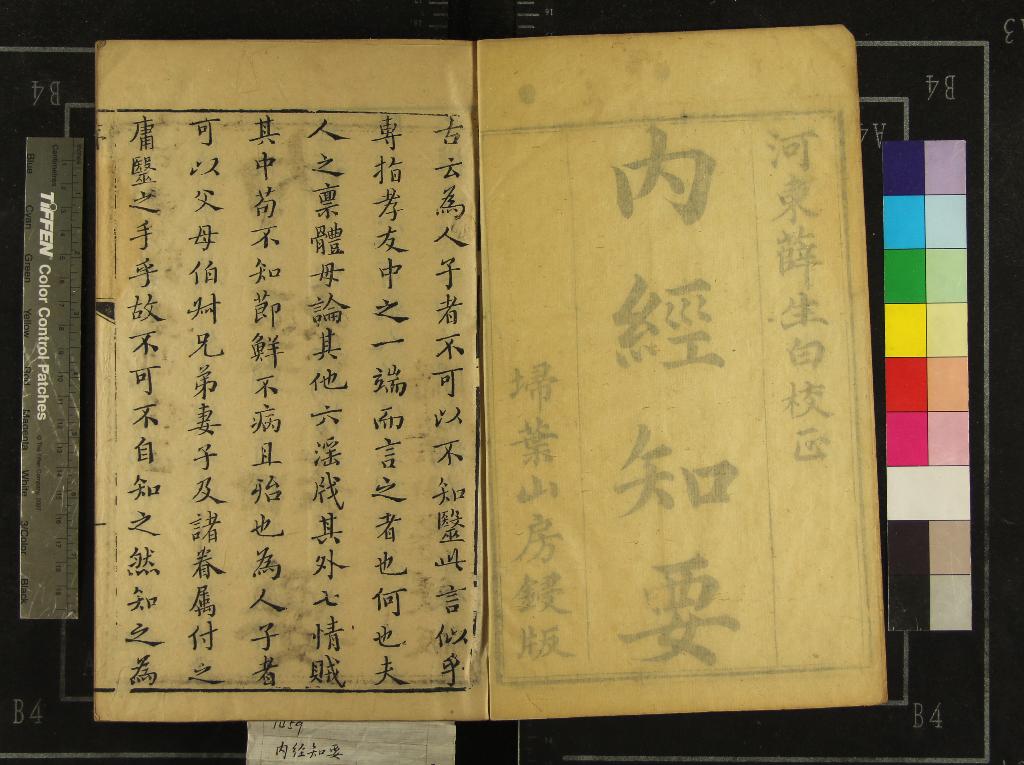 河東薛生白校正
內經知要
埽葉山房鋟版
古云為人子者不可以不知醫此言似乎
專指孝友中之一端而言之者也何也夫
人之禀體毋論其他六淫戕其外七情賊
其中苟不知節鮮不病且殆也為人子者
可以父母伯叔兄弟妻子及諸眷屬付之
庸醫之手乎故不可不自知之然知之為
1459
内经知要
TIFFEN Color Control Patches
© The Tiffen Company, 2007
Centimetres
Blue Cyan Green Yellow Red Magenta White 3/Color Black
B4
B4
B4
B4
A4
A3